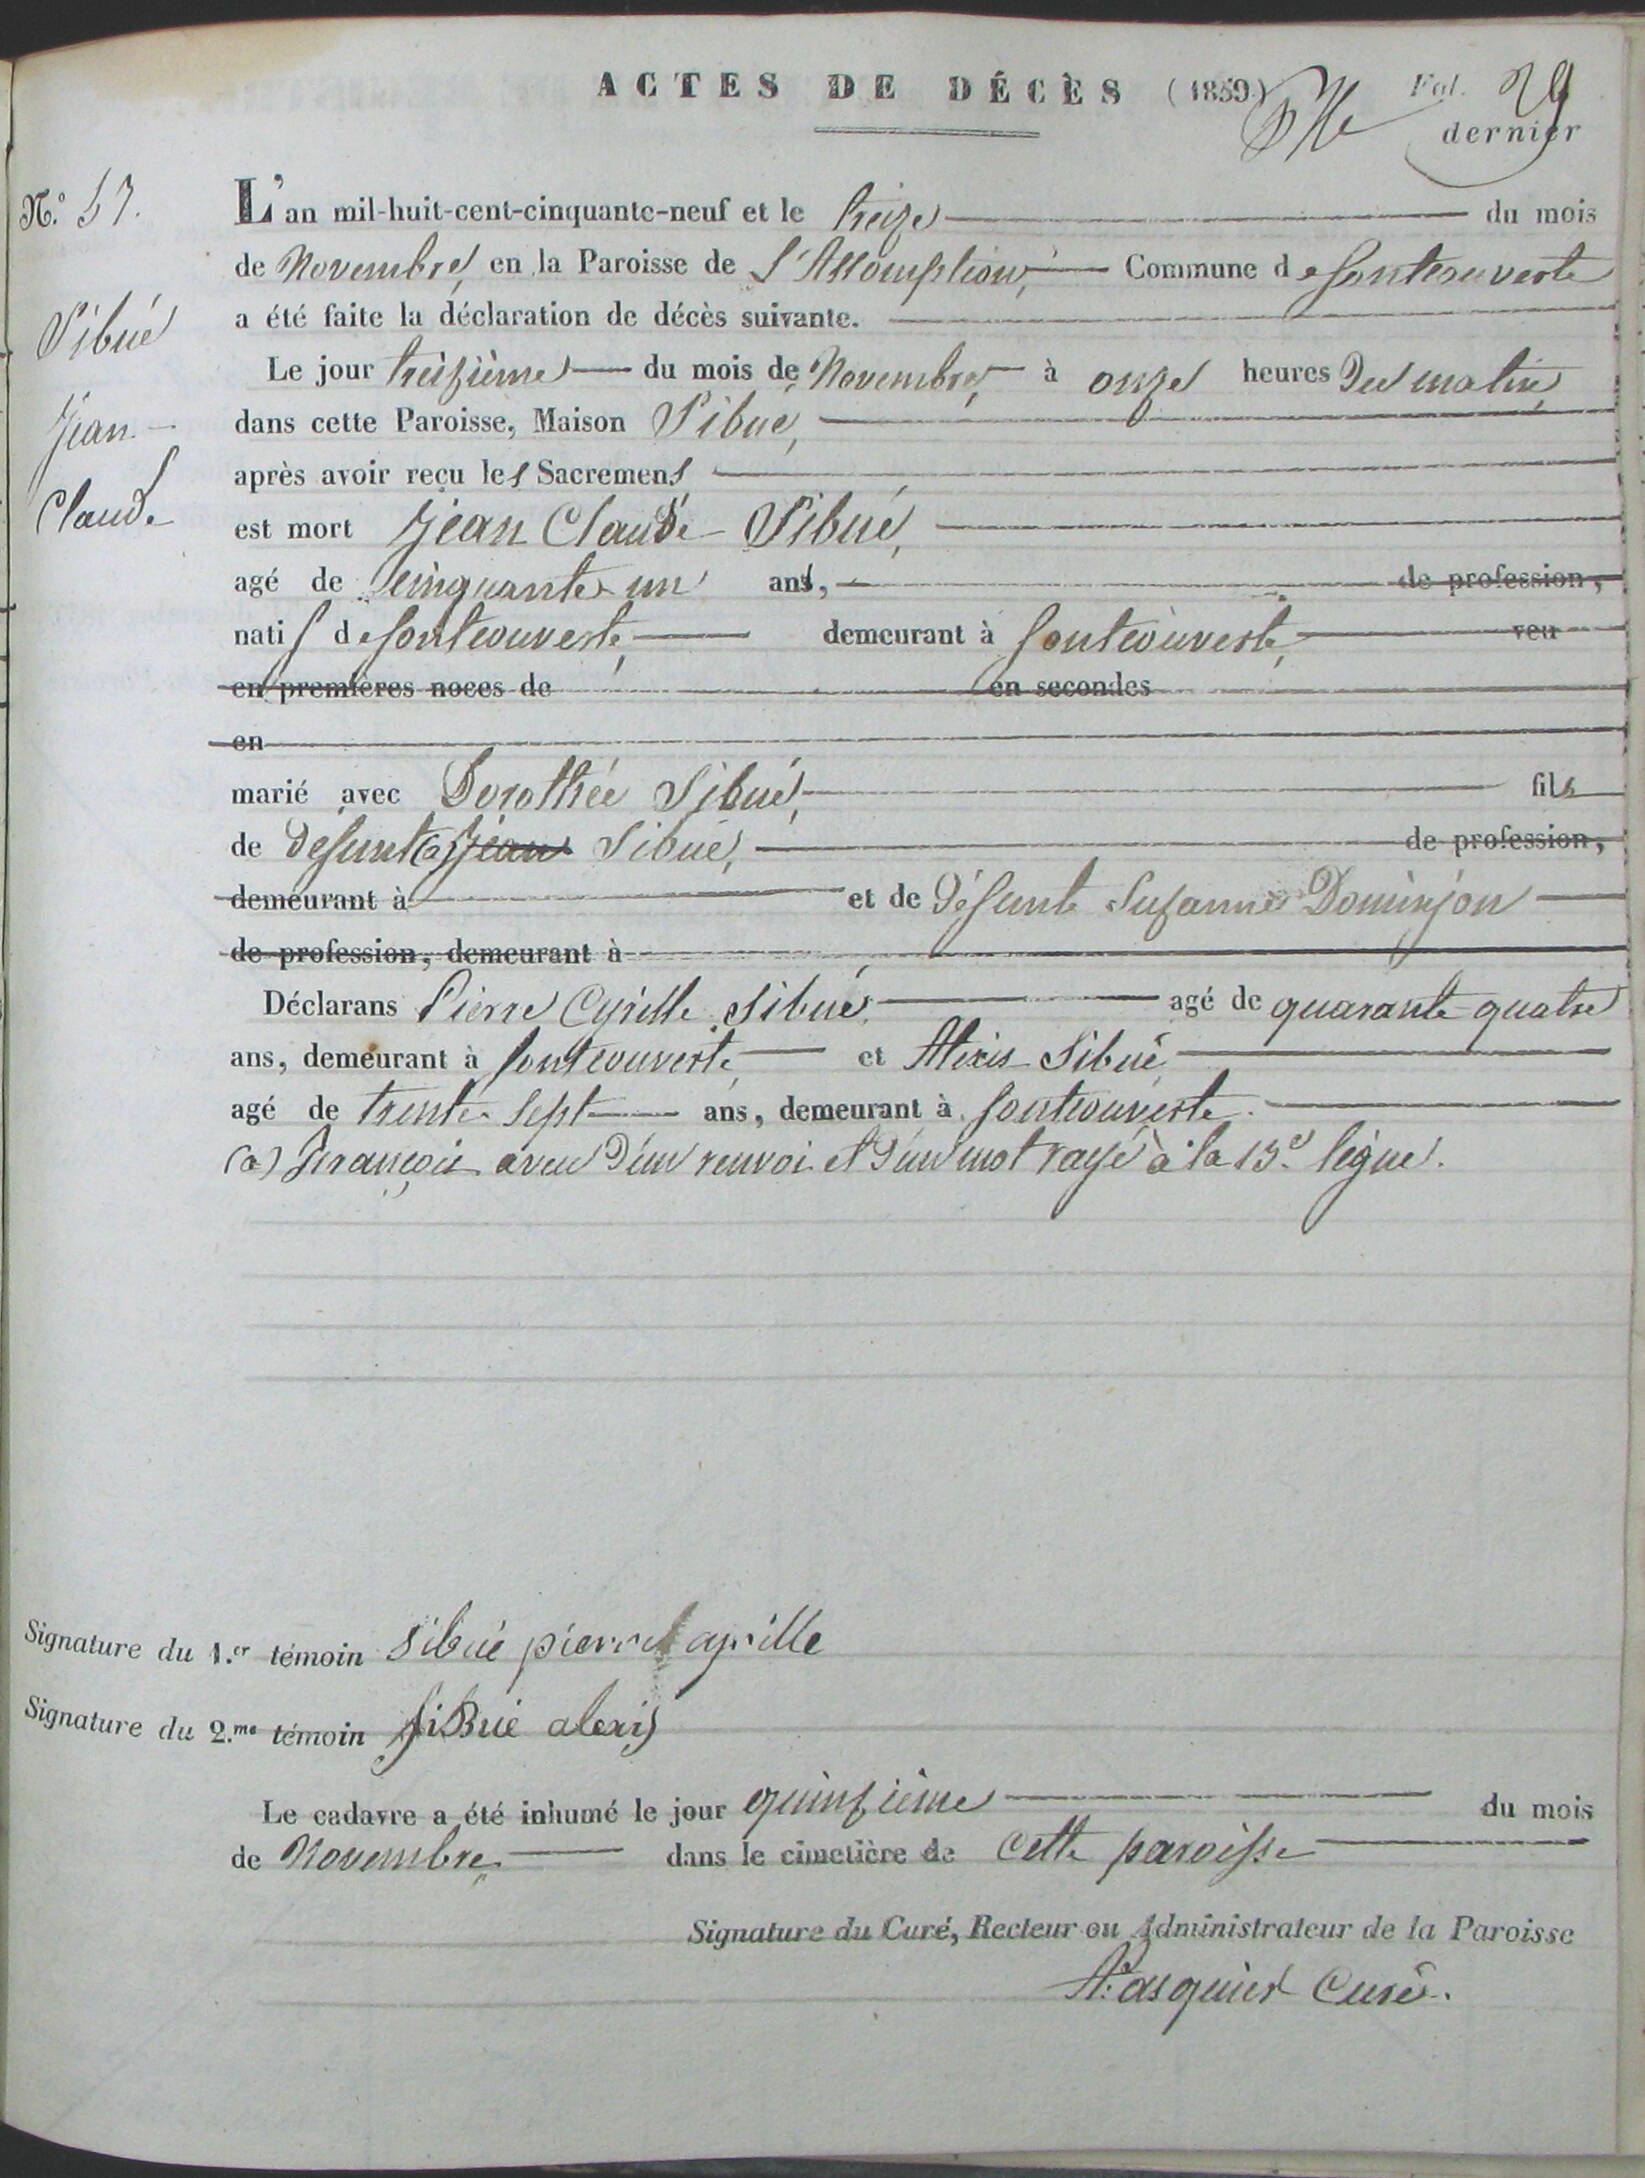 ACTES DE DÉCÈS (1859) Fol. 29
dernier
N.º 57.
Sibué
Jean-
Claude
L'an mil-huit-cent-cinquante-neuf et le treize du mois
de Novembre, en la Paroisse de l'Assomption, Commune de Fontcouverte
a été faite la déclaration de décès suivante.
Le jour treizième du mois de Novembre, à onze heures du matin,
dans cette Paroisse, Maison Sibué,
après avoir reçu les Sacremens
est mort Jean Claude Sibué,
agé de cinquante-un ans, de profession,
natif de Fontcouverte, demeurant à Fontcouverte, veu
en premières noces de en secondes
en
marié avec Dorothée Sibué, fils
de défunt (a) Jean Sibué, de profession,
demeurant à et de défunte Suzanne Dominjon
de profession, demeurant à
Déclarans Pierre Cyrille Sibué agé de quarante quatre
ans, demeurant à Fontcouverte, et Alexis Sibué
agé de trente-sept ans, demeurant à Fontcouverte.
(a) François aveu d'un renvoi et d'un mot rayé à la 13e ligne.
Signature du 1.er témoin Sibué pierre cyrille
Signature du 2.me témoin Sibué alexis
Le cadavre a été inhumé le jour quinzième du mois
de Novembre dans le cimetière de cette paroisse
Signature du Curé, Recteur ou Administrateur de la Paroisse
Pasquier Curé.